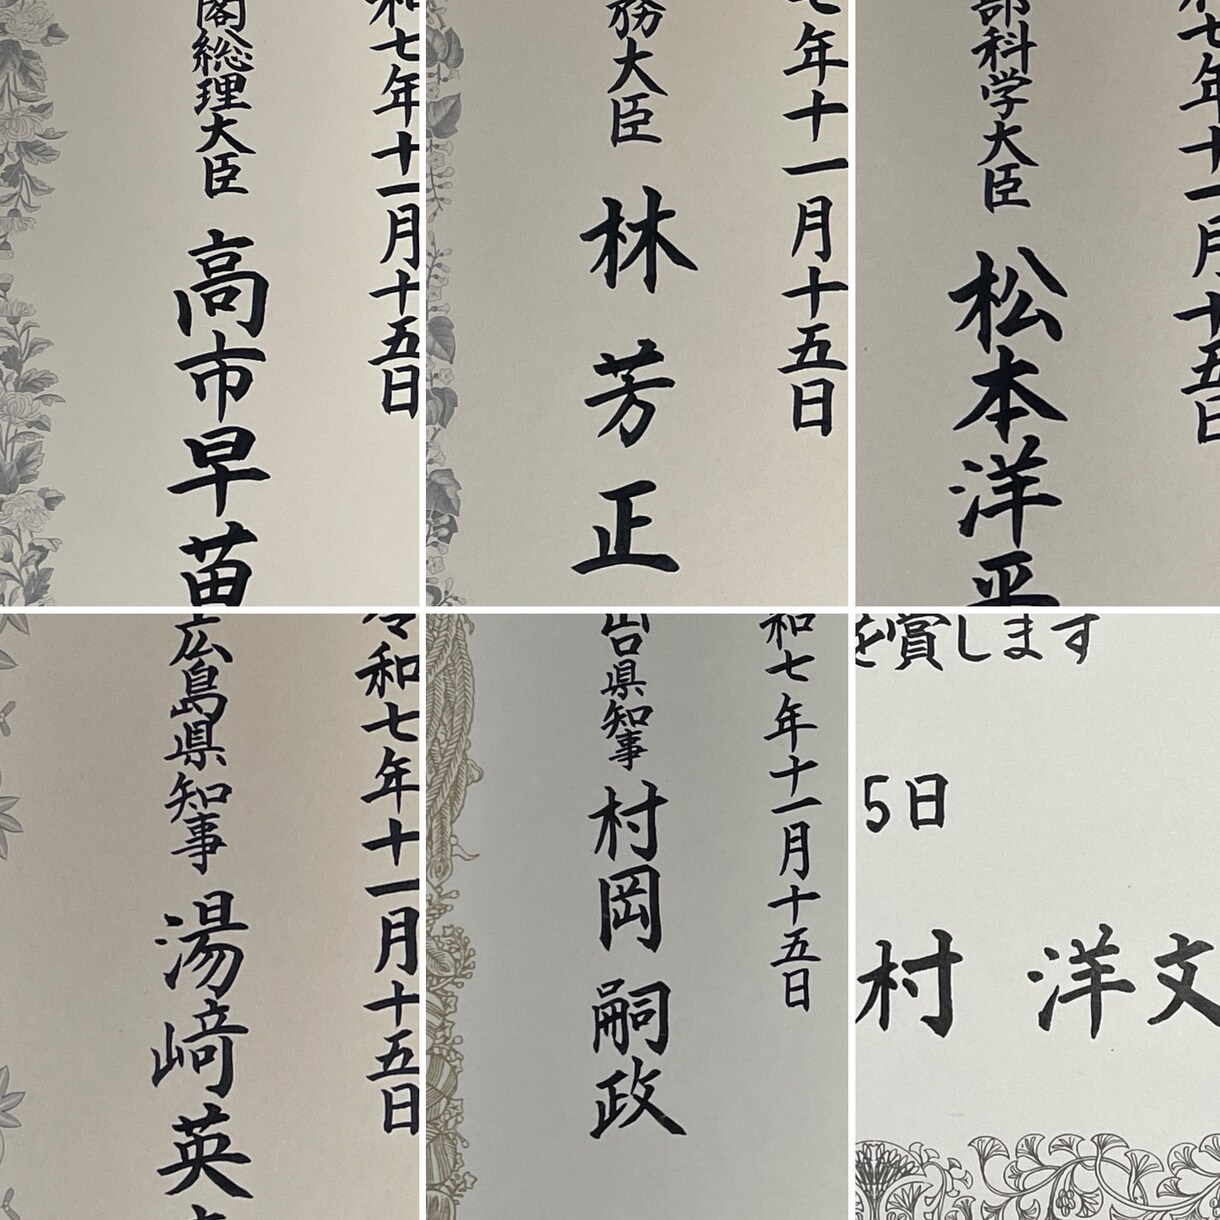 和七年十一月十五日
閣総理大臣 高市早苗
七年十一月十五日
務大臣 林芳正
和七年十一月十五日
部科学大臣 松本洋平
令和七年十一月十五日
広島県知事 湯﨑英
和七年十一月十五日
口県知事 村岡嗣政
を賞します
5日
村 洋文